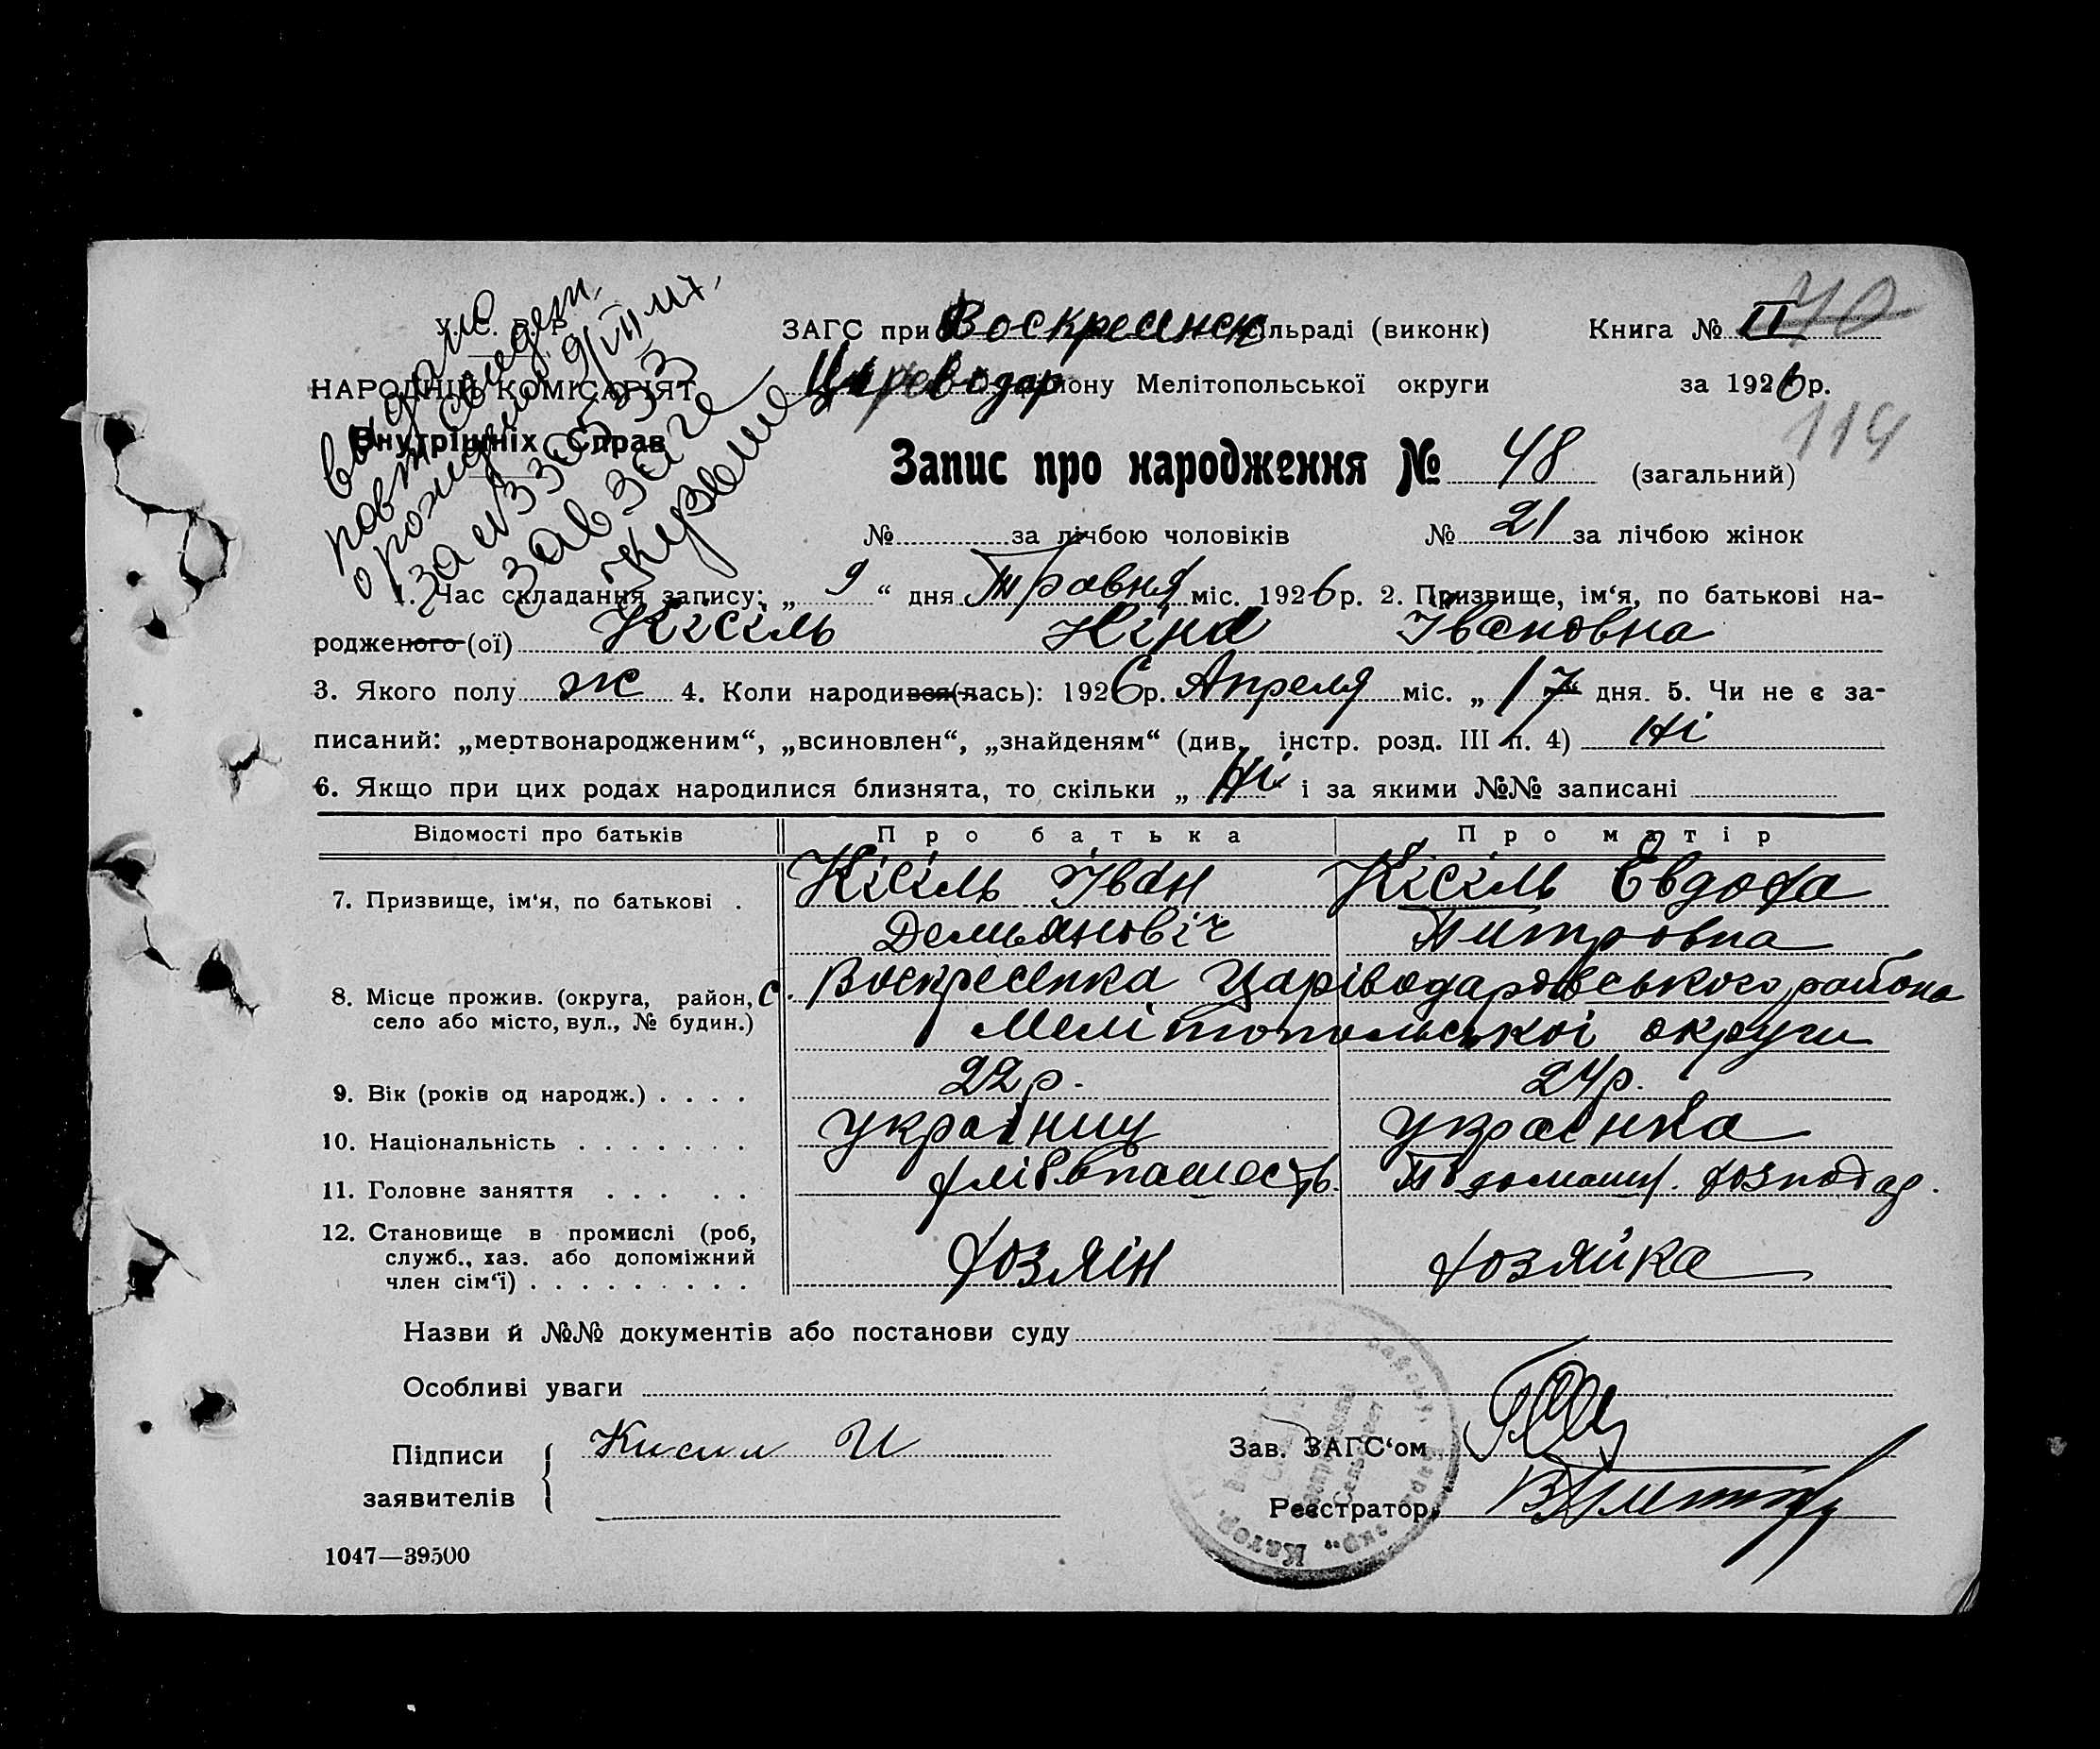 У. С. Р. Р.
НАРОДНІЙ КОМІСАРІЯТ
Внутрішніх Справ
видано
повт. свидет.
о рожден
за № 330533
зав загс
ЗАГС при Воскресенск сільраді (виконк) Книга № II 70
Цареводар району Мелітопольської округи за 1926 р.
114
Запис про народження № 48 (загальний)
№ за лічбою чоловіків № 21 за лічбою жінок
1. Час складання запису: „ 9 “ дня Травня міс. 1926 р. 2. Призвище, ім‘я, по батькові на-
родженого (ої) Кісіль Ніна Івановна
3. Якого полу ж 4. Коли народився(лась): 1926 р. Апреля міс. „ 17 “ дня. 5. Чи не є за-
писаний: „мертвонародженим“, „всиновлен“, „знайденям“ (див. інстр. розд. III п. 4) Ні
6. Якщо при цих родах народилися близнята, то скільки „ Ні і за якими №№ записані
Відомості про батьків Про батька Про матір
7. Призвище, ім‘я, по батькові . Кісіль Іван Кісіль Евдофа
Демьяновіч Питровна
8. Місце прожив. (округа, район, с. Воскресенка Царіводаровського района
село або місто, вул., № будин.) Мелітопольскоі округи
9. Вік (років од народж.) . . . . 22 р. 24 р.
10. Національність . . . . . . . украінищ украінка
11. Головне заняття . . . . . хлібопашесть. домашн. хозподар.
12. Становище в промислі (роб,
служб., хаз. або допоміжний хозяін хозяйка
член сім‘ї) . . . . . . . . .
Назви й №№ документів або постанови суду
Особливі уваги
Підписи Кисил И Зав. ЗАГС‘ом
заявителів Реєстратор
1047—39500